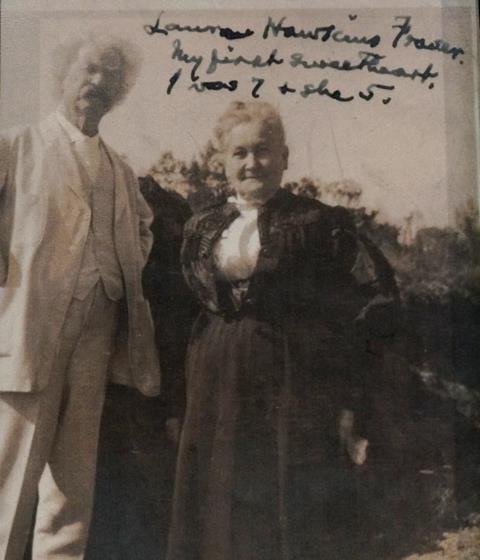 Laura Hawkins Frazer.
My first sweetheart.
I was 7 & she 5.